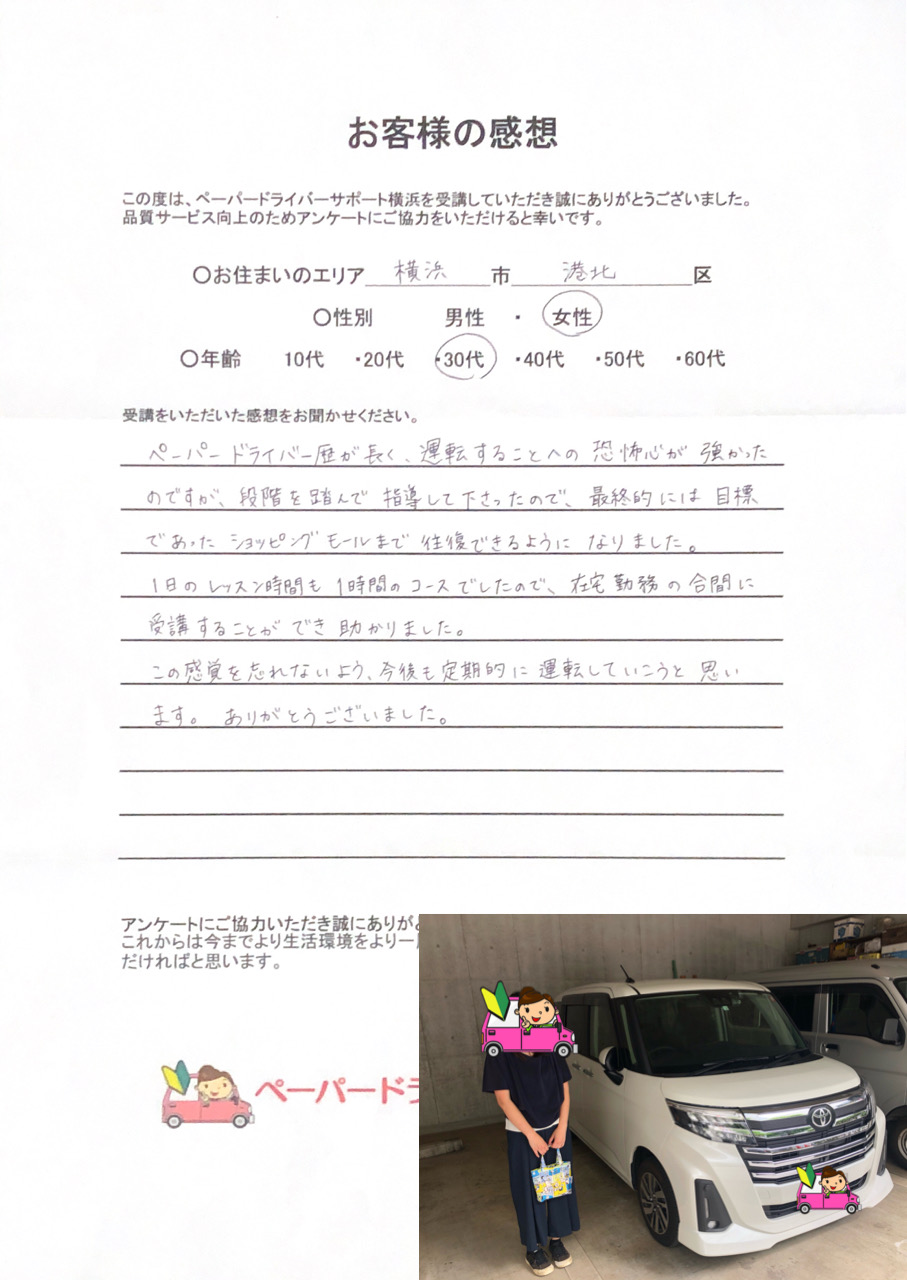 お客様の感想
この度は、ペーパードライバーサポート横浜を受講していただき誠にありがとうございました。
品質サービス向上のためアンケートにご協力をいただけると幸いです。
〇お住まいのエリア 横浜 市 港北 区
〇性別 男性 ・ 女性
〇年齢 10代 ・20代 ・30代 ・40代 ・50代 ・60代
受講をいただいた感想をお聞かせください。
ペーパードライバー歴が長く、運転することへの恐怖心が強かった
のですが、段階を踏んで指導して下さったので、最終的には目標
であったショッピングモールまで往復できるようになりました。
1日のレッスン時間も1時間のコースでしたので、在宅勤務の合間に
受講することができ助かりました。
この感覚を忘れないよう、今後も定期的に運転していこうと思い
ます。ありがとうございました。
アンケートにご協力いただき誠にありが
これからは今までより生活環境をより一
だければと思います。
ペーパードラ